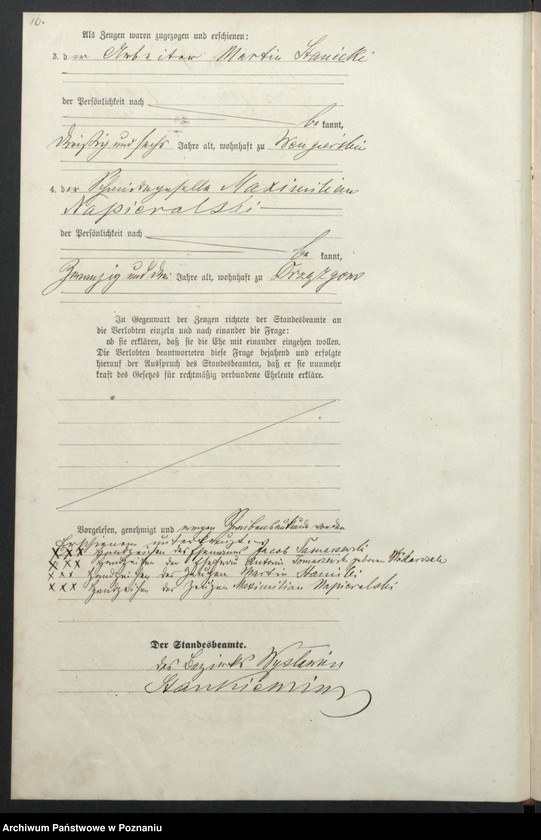 16.
Als Zeugen waren zugezogen und erschienen:
3. der Arbeiter Martin Stanicki
der Persönlichkeit nach
be kannt,
dreißig und sechs Jahre alt, wohnhaft zu
4. der Schmiedegeselle Maximilian
Napieralski
der Persönlichkeit nach
be kannt,
zwanzig und drei Jahre alt, wohnhaft zu
In Gegenwart der Zeugen richtete der Standesbeamte an
die Verlobten einzeln und nach einander die Frage:
ob sie erklären, daß sie die Ehe mit einander eingehen wollen.
Die Verlobten beantworteten diese Frage bejahend und erfolgte
hierauf der Ausspruch des Standesbeamten, daß er sie nunmehr
kraft des Gesetzes für rechtmäßig verbundene Eheleute erkläre.
Vorgelesen, genehmigt und wegen Schreibensunkunde von den
Erschienenen unterkreuzt.
XXX Handzeichen des Ehemanns Jacob Tomaszewski
XXX Handzeichen der Ehefrau Antonie Tomaszewski geborene
XXX Handzeichen des Zeugen Martin Stanicki
XXX Handzeichen des Zeugen Maximilian Napieralski
Der Standesbeamte.
des Bezirks
Stankiewicz
Archiwum Państwowe w Poznaniu